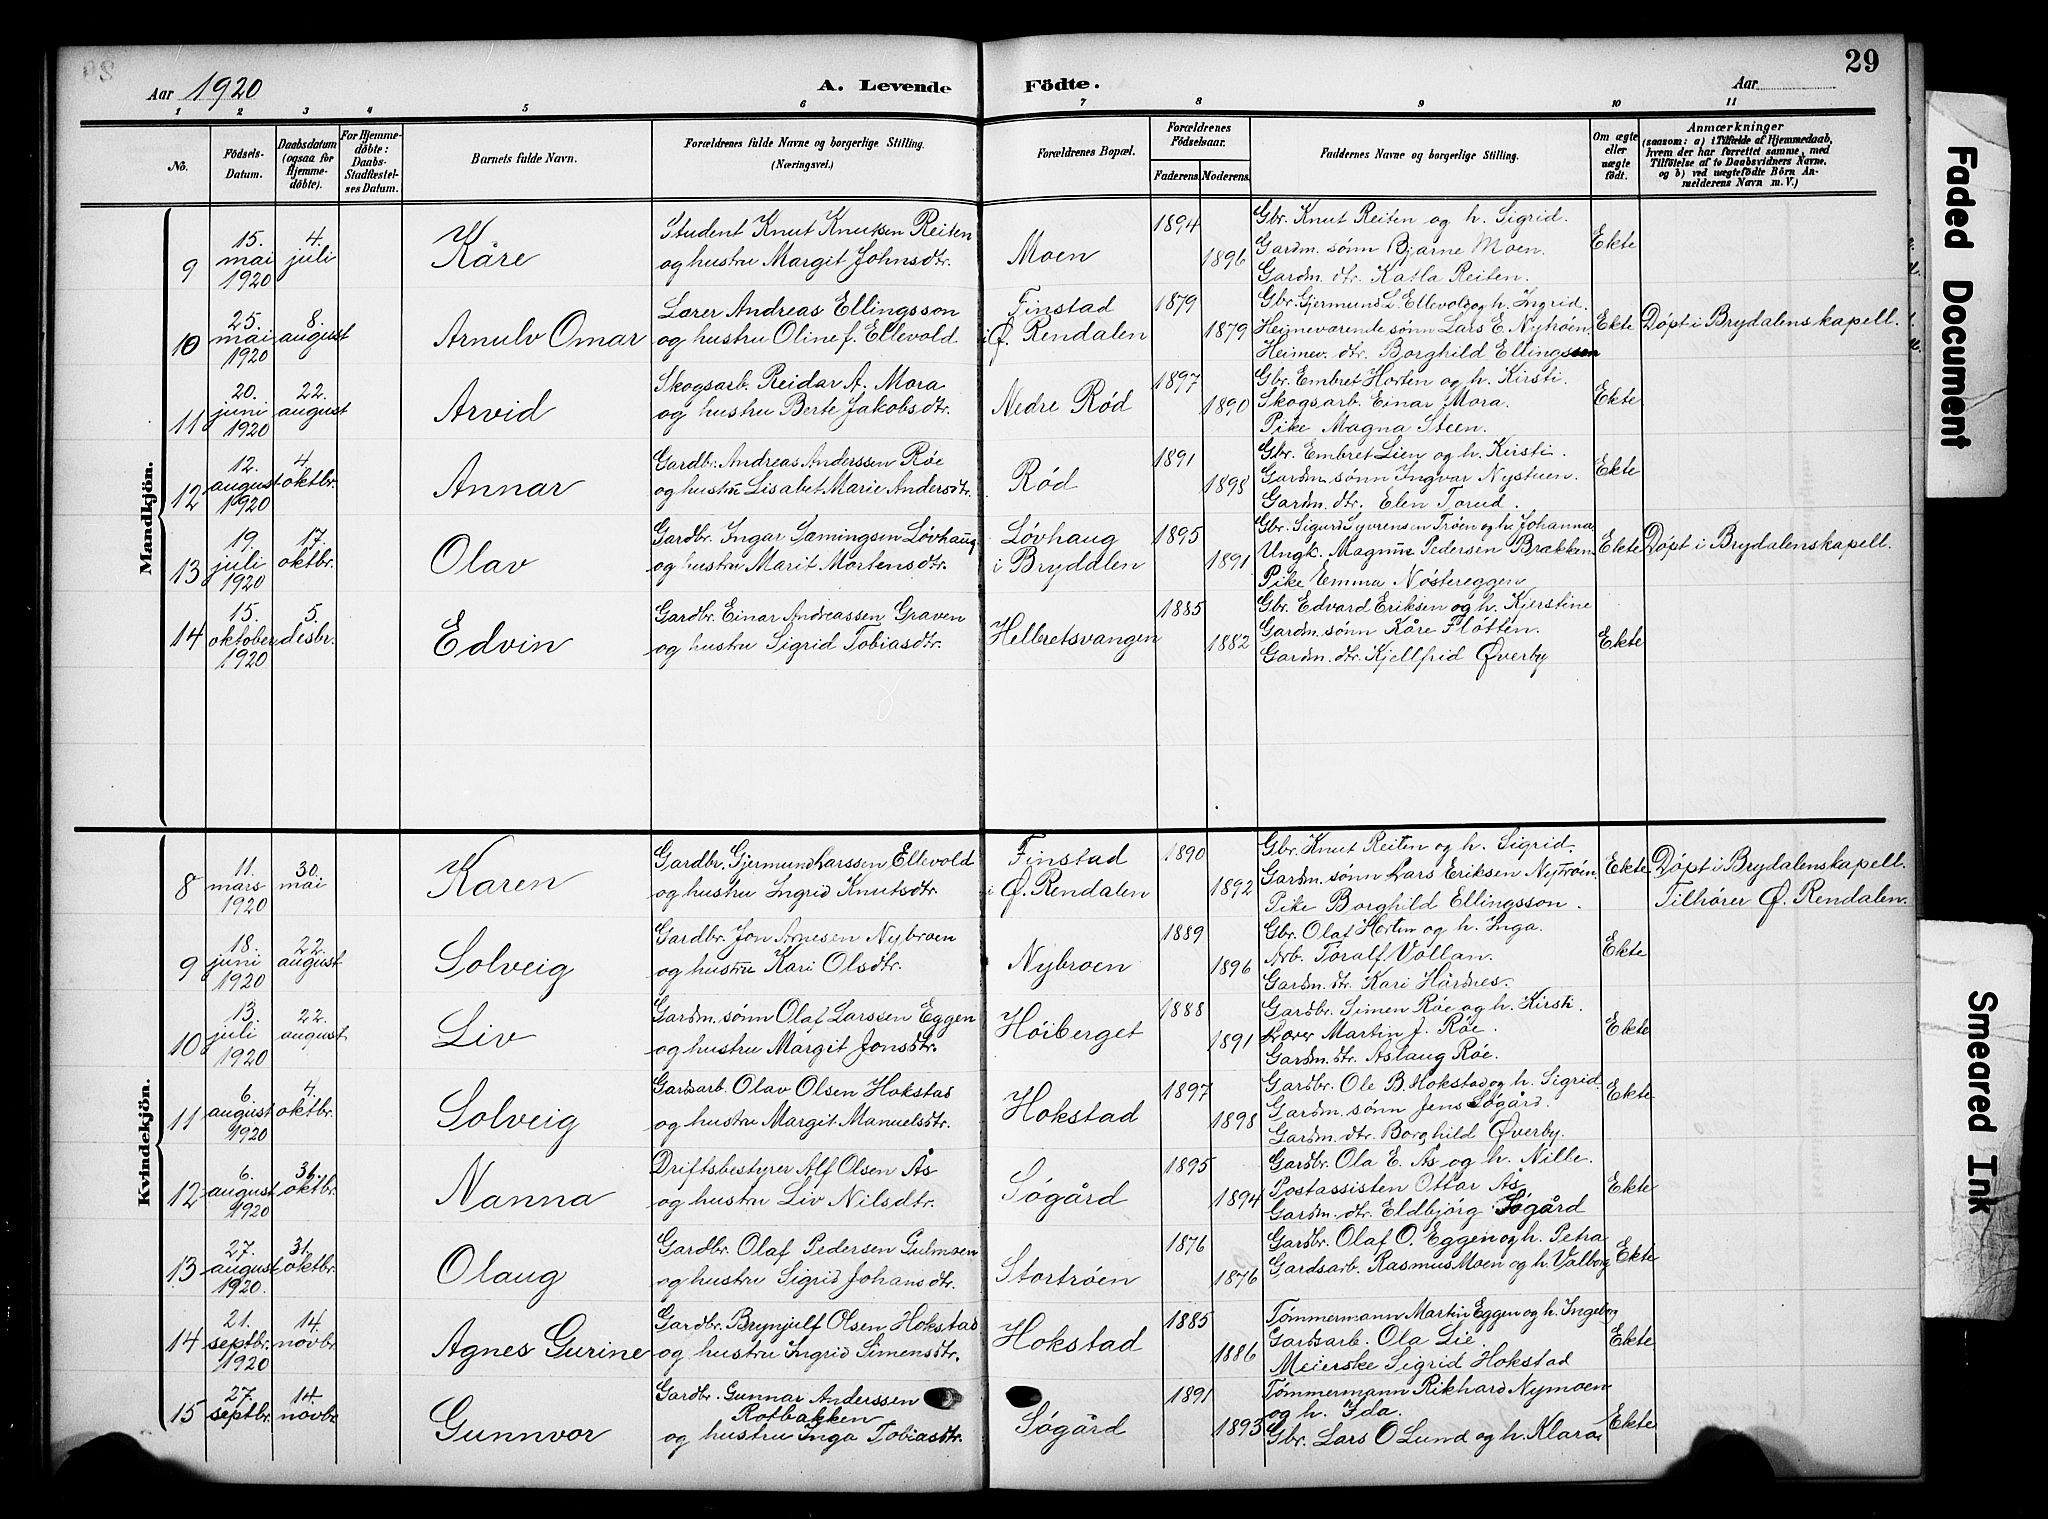 29
Aar 1920 A. Levende Födte. Aar
1 2 3 4 5 6 7 8 9 10 11
No. Födsels-Datum. Daabsdatum (ogsaa for Hjemmedöbte). For Hjemmedöbte: Daabs-Stadfæstelses Datum. Barnets fulde Navn. Forældrenes fulde Navne og borgerlige Stilling. (Næringsvei.) Forældrenes Bopæl. Forældrenes Födselsaar. Faderens. Moderens. Faddernes Navne og borgerlige Stilling. Om ægte eller uægte födt. Anmærkninger (saasom: a) i Tilfælde af Hjemmedaab, hvem der har forrettet samme, med Tilföielse af to Daabsvidners Navne. og b) ved uægtefödte Börn Anmelderens Navn m. V.)
Mandkjön.
9 15. mai 1920 4. juli Kåre Student Knut Knutsen Reiten og hustru Margit Johnsdtr. Moen 1894 1896 Gbr. Knut Reiten og h. Sigrid. Ekte
Gardm. sønn Bjarne Moen.
Gardm. dtr. Katla Reiten.
10 25. mai 1920 8. august Arnulv Omar Lærer Andreas Ellingsson og hustru Oline f. Ellevold Finstad i Ø. Rendalen 1879 1879 Gbr. Gjermund L. Ellevold og h. Ingrid. Ekte Døpt i Brydalens kapell.
Heimeværende sønn Lars E. Nytrøen
Heimev. dtr. Borghild Ellingsson
11 20. juni 1920 22. august Arvid Skogsarb. Reidar A. Mora og hustru Berte Jakobsdtr. Nedre Rød 1897 1890 Gbr. Embret Horten og h. Kirsti. Ekte
Skogsarb. Einar Mora.
Pike Magna Steen.
12 12. august 1920 4. oktbr. Annar Gardbr. Andreas Anderssen Røe og hustru Lisabet Marie Andersdtr. Rød 1891 1898 Gbr. Embret Lien og h. Kirsti. Ekte
Gardm. sønn Ingvar Nystuen.
Gardm. dtr. Elen Torud.
13 19. juli 1920 17. oktbr. Olav Gardbr. Ingar Sæmingsen Løvhaug og hustru Marit Mortensdtr. Løvhaug i Bryddlen 1895 1891 Gbr. Sigurd Syvrensen Trøen og h. Johanna Ekte Døpt i Brydalens kapell.
Ungk. Magnus Pedersen Brækken
Pike Emma Nøstereggen
14 15. oktober 1920 5. desbr. Edvin Gardbr. Einar Andreassen Graven og hustru Sigrid Tobiasdtr. Helbretsvangen 1885 1882 Gbr. Edvard Eriksen og h. Kjerstine Ekte
Gardm. sønn Kåre Fløtten.
Gardm. dtr. Kjellfrid Øverby
Kvindekjön.
8 11. mars 1920 30. mai Karen Gardbr. Gjermund Larssen Ellevold og hustru Ingrid Knutsdtr. Finstad i Ø. Rendalen 1890 1892 Gbr. Knut Reiten og h. Sigrid. Ekte Døpt i Brydalens kapell. Tilhører Ø. Rendalen.
Gardm. sønn Lars Eriksen Nytrøen
Pike Borghild Ellingsson.
9 18. juni 1920 22. august Solveig Gardbr. Jon Arnesen Nybroen og hustru Kari Olsdtr. Nybroen 1889 1896 Gbr. Olaf Horten og h. Inga. Ekte
Arb. Toralf Vollan.
Gardm. dtr. Kari Hårdnes.
10 13. juli 1920 22. august Liv Gardm. sønn Olaf Larssen Eggen og hustru Margit Jonsdtr. Høiberget 1888 1891 Gardbr. Simen Røe og h. Kirsti. Ekte
Lærer Martin J. Røe.
Gardm. dtr. Aslaug Røe.
11 6. august 1920 4. oktbr. Solveig Gardsarb. Olav Olsen Hokstad og hustru Margit Manuelsdtr. Hokstad 1897 1898 Gardbr. Ole B. Hokstad og h. Sigrid. Ekte
Gardm. sønn Jens Søgård.
Gardm. dtr. Borghild Øverby.
12 6. august 1920 31. oktbr. Nanna Driftsbestyrer Alf Olsen Ås og hustru Liv Nilsdtr. Søgård 1895 1894 Gardbr. Ola E. Ås og h. Nille. Ekte
Postassisten Ottar Ås
Gardm. dtr. Eldbjørg Søgård
13 27. august 1920. 31. oktbr. Olaug Gardbr. Olaf Pedersen Gulmoen og hustru Sigrid Johansdtr. Stortrøen 1876 1876 Gardbr. Olaf O. Eggen og h. Petra Ekte
Gardsarb. Rasmus Moen og h. Valborg
14 21. septbr. 1920 14. novbr. Agnes Gurine Gardbr. Brynjulf Olsen Hokstad og hustru Ingrid Simensdtr. Hokstad 1885 1886 Tømmermann Martin Eggen og h. Ingeborg Ekte
Gardsarb. Ola Lie.
Meierske Sigrid Hokstad
15 27. septbr. 14. novbr Gunnvor Gardbr. Gunnar Anderssen Rotbakken og hustru Inga Tobiasdtr. Søgård 1891 1893 Tømmermann Rikhard Nymoen og h. Ida. Ekte
Gbr. Lars O Lund og h. Klara.
Faded Document
Smeared Ink